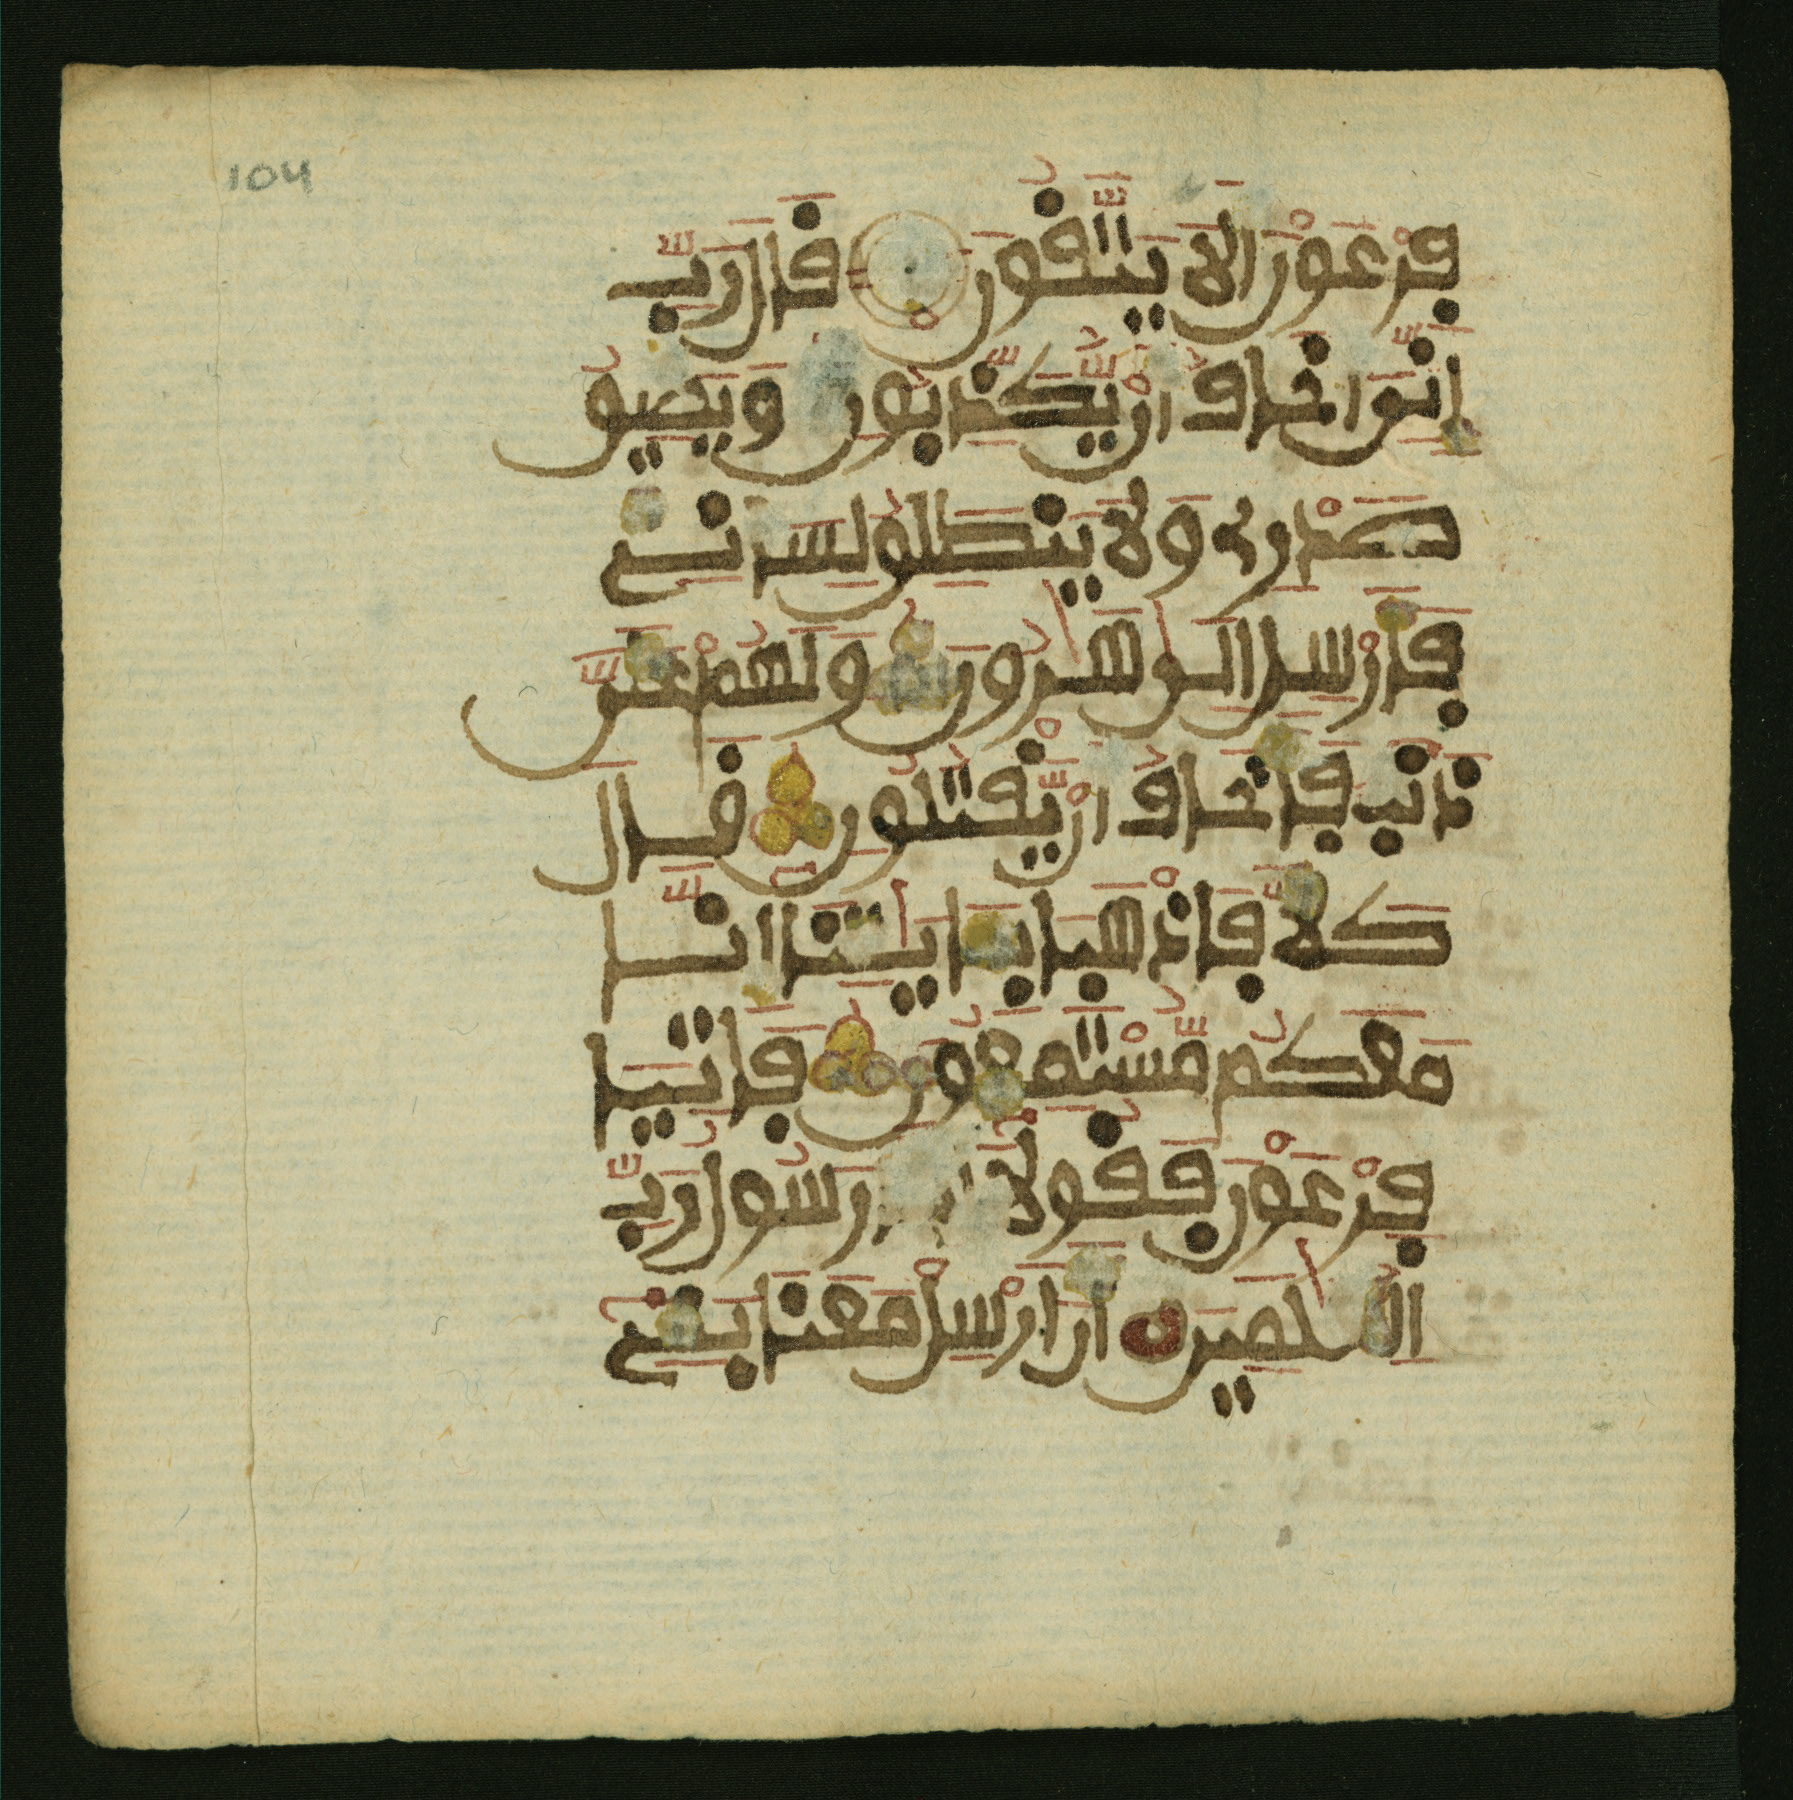 104
فِرْعَوْنَ أَلَا يَتَّقُونَ قَالَ رَبِّ
إِنِّيَ أَخَافُ أَنْ يُّكَذِّبُونِ وَيَضِيقُ
صَدْرِي وَلَا يَنطَلِقُ لِسَانِي
فَأَرْسِلْ إِلَىٰ هَٰرُونَ وَلَهُمْ عَلَيَّ
ذَنبٌ فَأَخَافُ أَنْ يَّقْتُلُونِ قَالَ
كَلَّا فَاذْهَبَا بِـَٔايَٰتِنَا إِنَّا
مَعَكُم مُّسْتَمِعُونَ فَاتِيَا
فِرْعَوْنَ فَقُولَا إِنَّا رَسُولُ رَبِّ
الْعَٰلَمِينَ أَنْ أَرْسِلْ مَعَنَا بَنِي